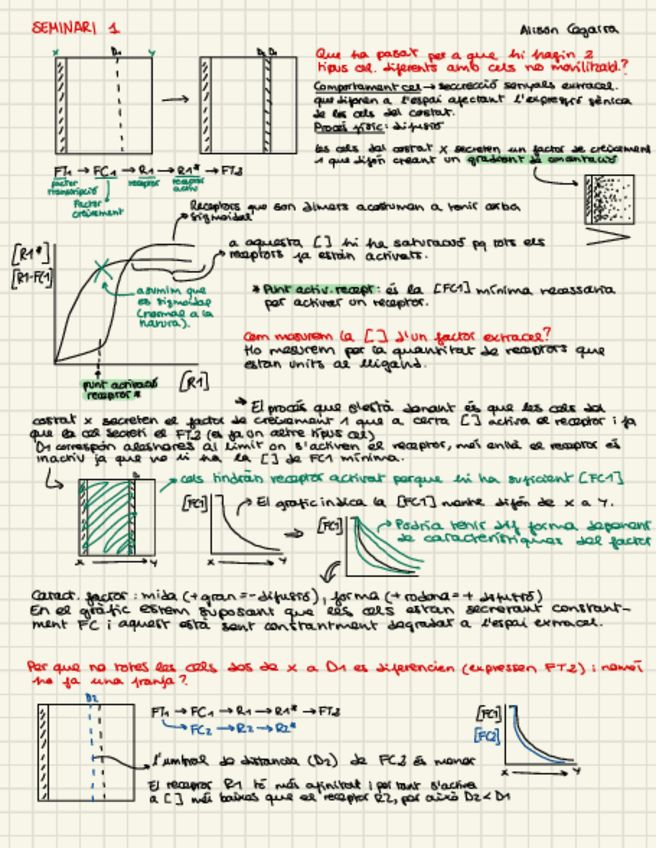 SEMINARI 1
Alison Cagarra
X D1 Y
D2 D1
Que ha passat per a que hi hagin 2
tipus cel. diferents amb cels no movilitzad.?
Comportament cel → seccreció senyals extracel.
que difonen a l'espai afectant l'expressió gènica
de les cels del costat.
Procés físic: difusió
les cels del costat X secreten un factor de creixement
1 que difon creant un gradient de concentració
FT1 → FC1 → R1 → R1* → FT2
factor transcripció
Factor creixement
receptor
receptor activ
Receptors que son dímers acostumen a tenir corba
sigmoidal
[R1*]
[R1-FC1]
a aquesta [] hi ha saturació pq tots els
receptors ja estan activats.
assumim que
es sigmoidal
(normal a la
natura).
* Punt activ. recept: és la [FC1] mínima necessaria
per activar un receptor.
Com mesurem la [] d'un factor extracel?
Ho mesurem per la quantitat de receptors que
estan units al lligand.
punt activació
receptor*
[R1]
→ El procés que s'està donant és que les cels del
costat x secreten el factor de creixement 1 que a certa [] activa el receptor i fa
que la cel secreti el FT2 (es ja un altre tipus cel)
D1 correspón aleshores al límit on s'activen el receptor, més enllà el receptor és
inactiu ja que no hi ha la [] de FC1 mínima.
→ cels tindràn receptor activat perque hi ha suficient [FC1]
[FC1]
→ El grafic indica la [FC1] mentre difón de x a Y.
[FC1]
→ Podria tenir dif forma depenent
de característiques del factor
X → Y
X → Y
Caract. factor: mida (+gran =- difusió), forma (+ rodona = + difusió)
En el gràfic estem suposant que les cels estan secretant constant-
ment FC i aquest està sent constantment degradat a l'espai extracel.
Per que no totes les cels des de x a D1 es diferencien (expressen FT2) i només
ho fa una franja?
D2
FT1 → FC1 → R1 → R1* → FT2
→ FC2 → R2 → R2*
[FC1]
[FC2]
X → Y
→ l'umbral de distancia (D2) de FC2 és menor
El receptor R1 té més afinitat i per tant s'activa
a [] més baixes que el receptor R2, per això D2 < D1